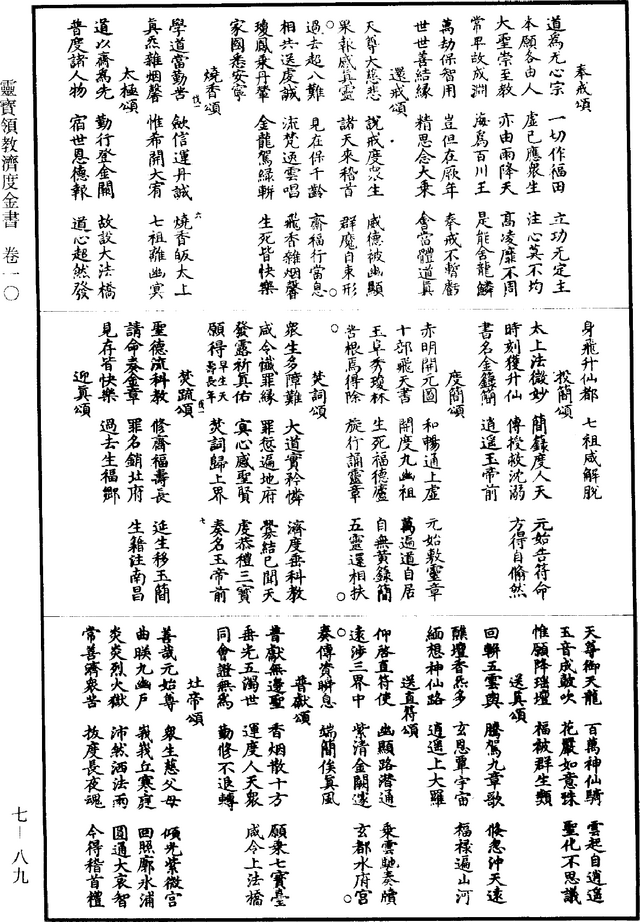 奉戒頌
道為无心宗　一切作福田　立功元定主
本願各由人　虛己應衆生　注心莫不均
大聖崇至教　亦由雨降天　高凌靡不周
常卑故成淵　海為百川王　是能舍龍鱗
萬劫保智用　豈但在厥年　奉戒不暫虧
世世善結緣　精思念大乗　會當體道真
還戒頌
天尊大慈悲　說戒度衆生　威德被幽顯
果報感真靈　諸天來稽首　群魔自束形
過去超八難　見在保千齡　齋福行當息
相共送虔誠　流梵逐雲唱　飛香雜烟馨
瓊鳳乗丹輦　金龍駕緑軿　生死皆快樂
家國悉安寧
燒香頌
學道當勤苦　歛信運丹誠　燒香皈太上
真炁雜烟馨　惟希開大宥　七祖離幽冥
太極頌
道以齋為先　勤行登金闕　故設大法橋
普度諸人物　宿世恩德報　道心超然發
身飛升仙都　七祖咸解脫
投簡頌
太上法微妙　簡籙度人天　元始告符命
時刻獲升仙　傳授赦沈溺　方得自翛然
書名金籙簡　逍遥玉帝前
度簡頌
赤明開元圖　和暢通上虛　元始敷靈章
十部飛天書　開度九幽祖　萬遍道自居
玉阜秀瓊林　生死福德廬　自無黄籙簡
苦根焉得除　旋行誦靈章　五靈還相扶
焚詞頌
衆生多障難　大道實矜憐　濟度垂科教
咸令懺罪緣　罪愆遍地府　釁結已聞天
發露祈真佑　冥心感聖賢　虔恭禮三寶
願得早生天壽長年　焚詞歸上界　奏名玉帝前
焚疏頌
聖德流科教　修齋福壽長　延生移玉簡
請命奏金章　罪名銷北府　生籍注南昌
見存皆快樂　過去生福鄉
迎真頌
天尊御天龍　百萬神仙騎　雲起自逍遥
玉音成鼓吹　花嚴如意珠　聖化不思議
惟願降瑶壇　福被群生類
送真頌
回軿五雲輿　騰駕九章歌　倏忽沖天遠
醮壇香炁多　玄恩覃宇宙　福禄遍山河
緬想神仙路　逍遥上大羅
送直符頌
仰啓直符使　幽顯路潛通　乗雲馳奏牘
遠涉三界中　紫清金闕邃　玄都水府宫
奏傳資瞬息　端簡俟真風
普獻頌
普獻無邊聖　香烟散十方　願乗七寶臺
垂光五濁世　運度人天衆　咸令上法橋
同會證無為　勤修不退轉
灶帝頌
善哉元始尊　衆生慈父母　傾光紫微宫
曲映九幽戶　峩峩丘寒庭　回照廓氷浦
炎炎烈火獄　沛然洒法雨　圓通大哀智
常善濟衆苦　拔度長夜魂　今得稽首禮
靈寶領教濟度金書　卷一〇
七—八九